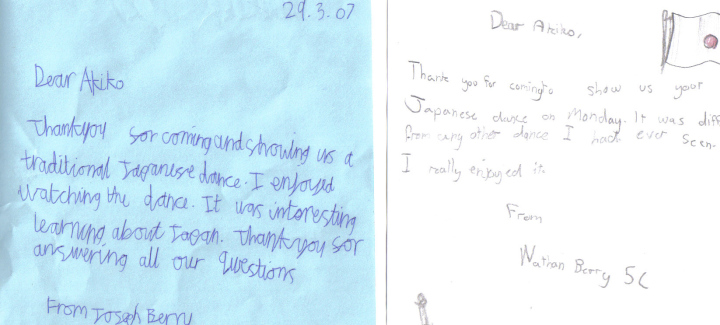 29.3.07
Dear Akiko
Thankyou for coming and showing us a
traditional Japanese dance. I enjoyed
watching the dance. It was interesting
learning about Japan. Thankyou for
answering all our questions
From Joseph Berry
Dear Akiko,
Thank you for coming to show us your
Japanese dance on Monday. It was diff
from any other dance I had ever seen.
I really enjoyed it.
From
Nathan Berry 5C